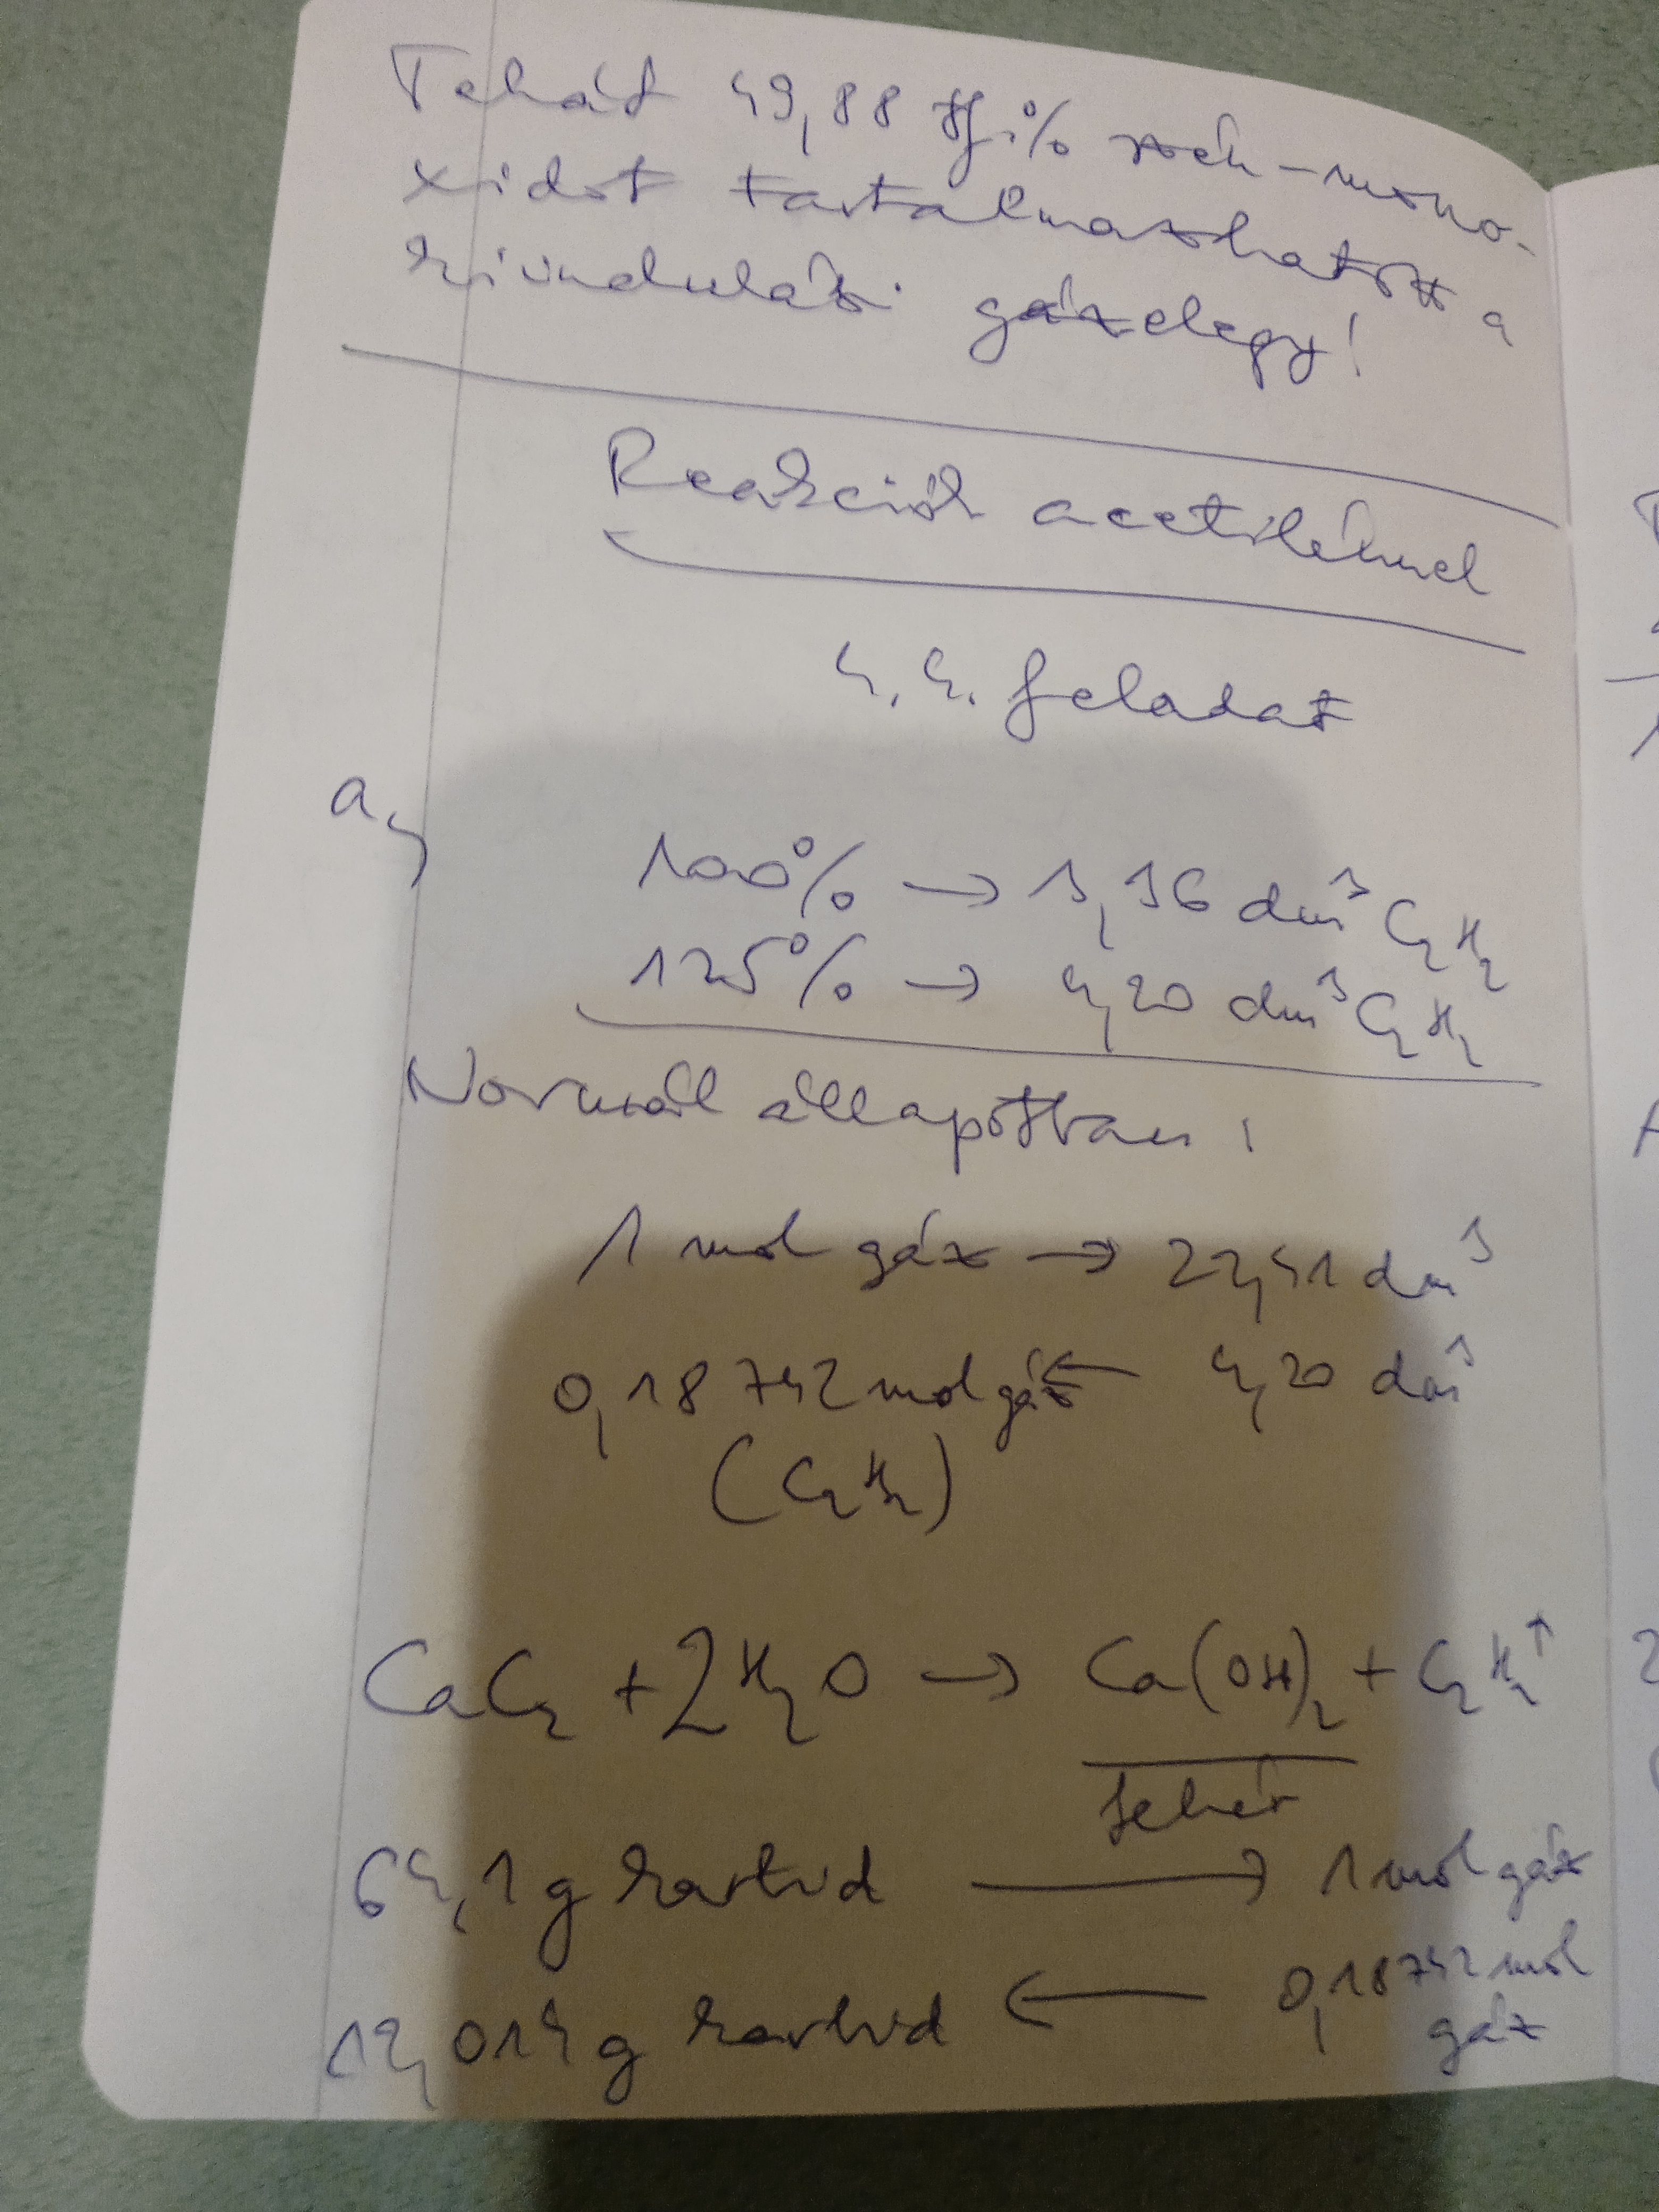 Tehát 49,88 tf.% szén-mono-
xidot tartalmazhatott a
kiindulási gázelegy!
Reakciók acetilénnel
4.4. feladat
a,
100% → 3,36 dm³ C₂H₂
125% → 4,20 dm³ C₂H₂
Normál állapotban:
1 mol gáz → 22,41 dm³
0,18742 mol gáz ← 4,20 dm³
(C₂H₂)
CaC₂ + 2H₂O → Ca(OH)₂ + C₂H₂↑
fehér
64,1 g karbid → 1 mol gáz
12,014 g karbid ← 0,18742 mol
gáz